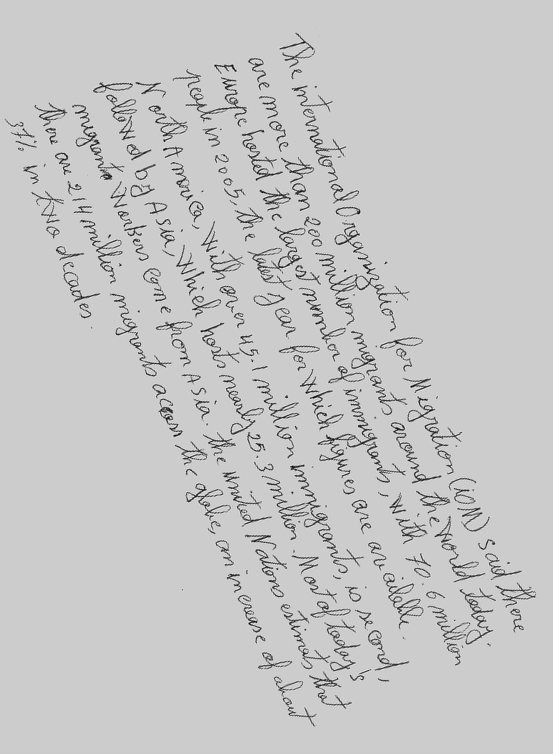 The international Organization for Migration (iOM) said there
are more than 200 million migrants around the world today.
Europe hosted the largest number of immigrants, with 70.6 million
people in 2005, the latest year for which figures are available.
North America, with over 45.1 million immigrants, is second,
followed by Asia, which hosts nearly 25.3 million. Most of today's
migrants workers come from Asia. the united Nations estimates that
there are 214 million migrants across the globe, an increase of about
37% in two decades.